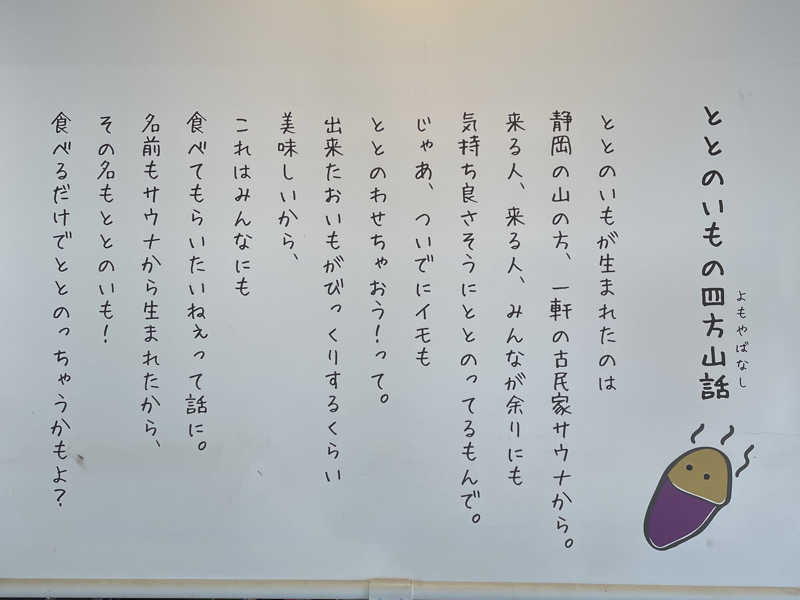 ととのいもの四方山話
よもやばなし
ととのいもが生まれたのは
静岡の山の方、一軒の古民家サウナから。
来る人、来る人、みんなが余りにも
気持ち良さそうにととのってるもんで。
じゃあ、ついでにイモも
ととのわせちゃおう！って。
出来たおいもがびっくりするくらい
美味しいから、
これはみんなにも
食べてもらいたいねぇって話に。
名前もサウナから生まれたから、
その名もととのいも！
食べるだけでととのっちゃうかもよ？